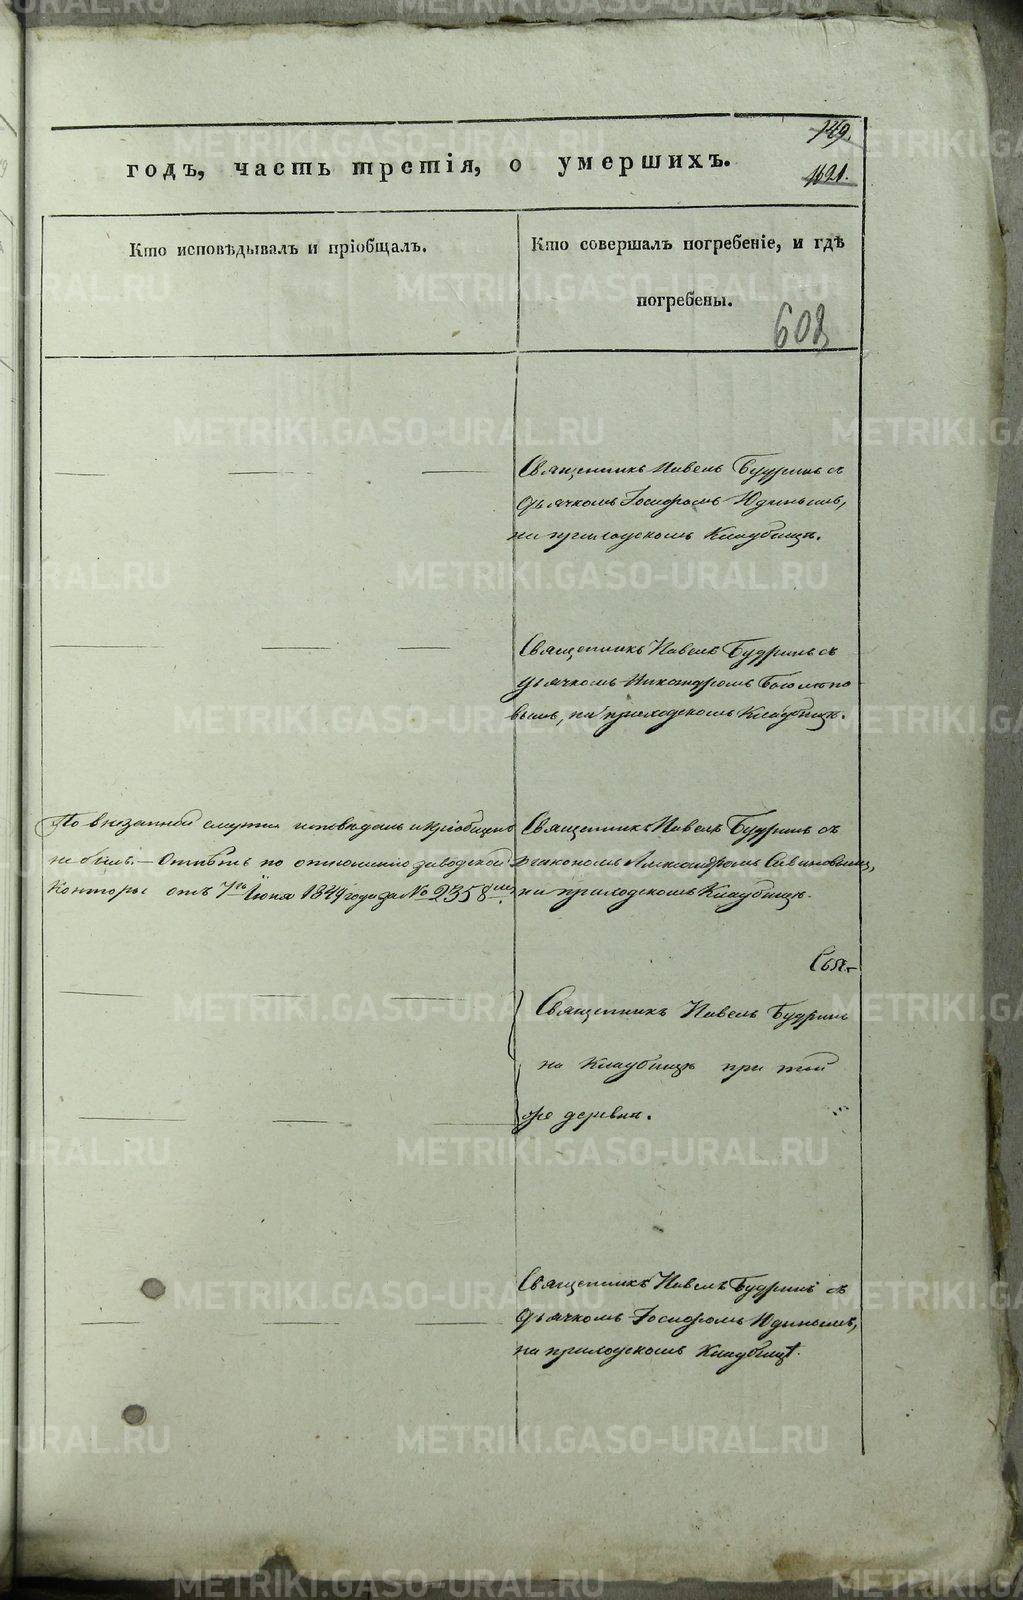 149.
годъ, часть третія, о умершихъ.
1621.
Кто исповѣдывалъ и пріобщалъ.
Кто совершалъ погребеніе, и гдѣ
погребены.
608
Священникъ Павелъ Будринъ съ
дьячкомъ Іосифомъ Юдинымъ,
на приходскомъ Кладбищѣ.
Священникъ Павелъ Будринъ съ
дьячкомъ Никандромъ
вымъ, на приходскомъ Кладбищѣ.
По внезапной смерти исповѣданъ и пріобщенъ
не былъ. — Отпѣтъ по отношенію заводской
Конторы отъ 7го Іюня 1844 года за № 2358мъ.
Священникъ Павелъ Будринъ съ
діакономъ Александромъ
на приходскомъ Кладбищѣ.
Священникъ Павелъ Будринъ
на Кладбищѣ при той
же деревнѣ.
Священникъ Павелъ Будринъ съ
дьячкомъ Іосифомъ Юдинымъ,
на приходскомъ Кладбищѣ.
METRIKI.GASO-URAL.RU